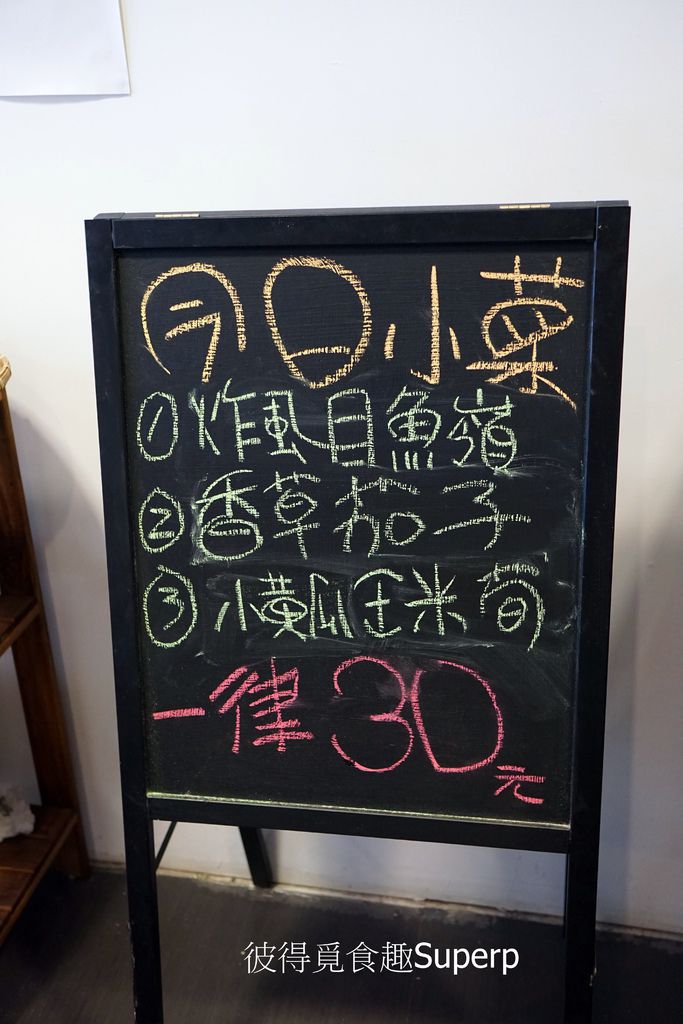 今日小菜
①炸風目魚嶺
②香草茄子
③小黃瓜玉米筍
一律30元
彼得覓食趣Superp